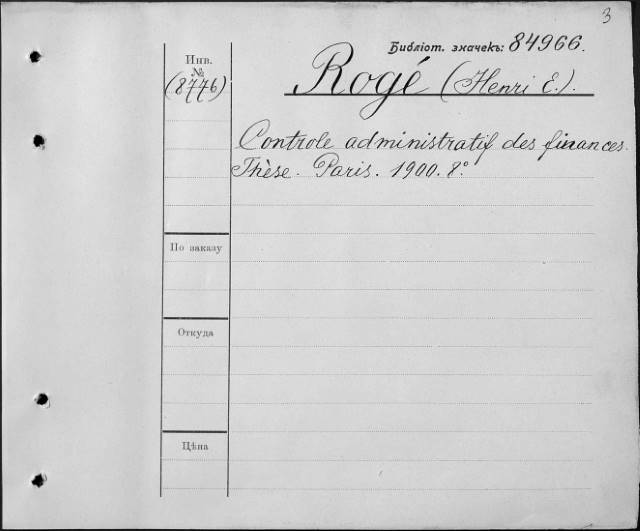 3
Библіот. значекъ: 84966.
Инв.
№
(8776)
Rogé (Henri E.).
Controle administratif des finances.
Thèse. Paris. 1900. 8º
По заказу
Откуда
Цѣна